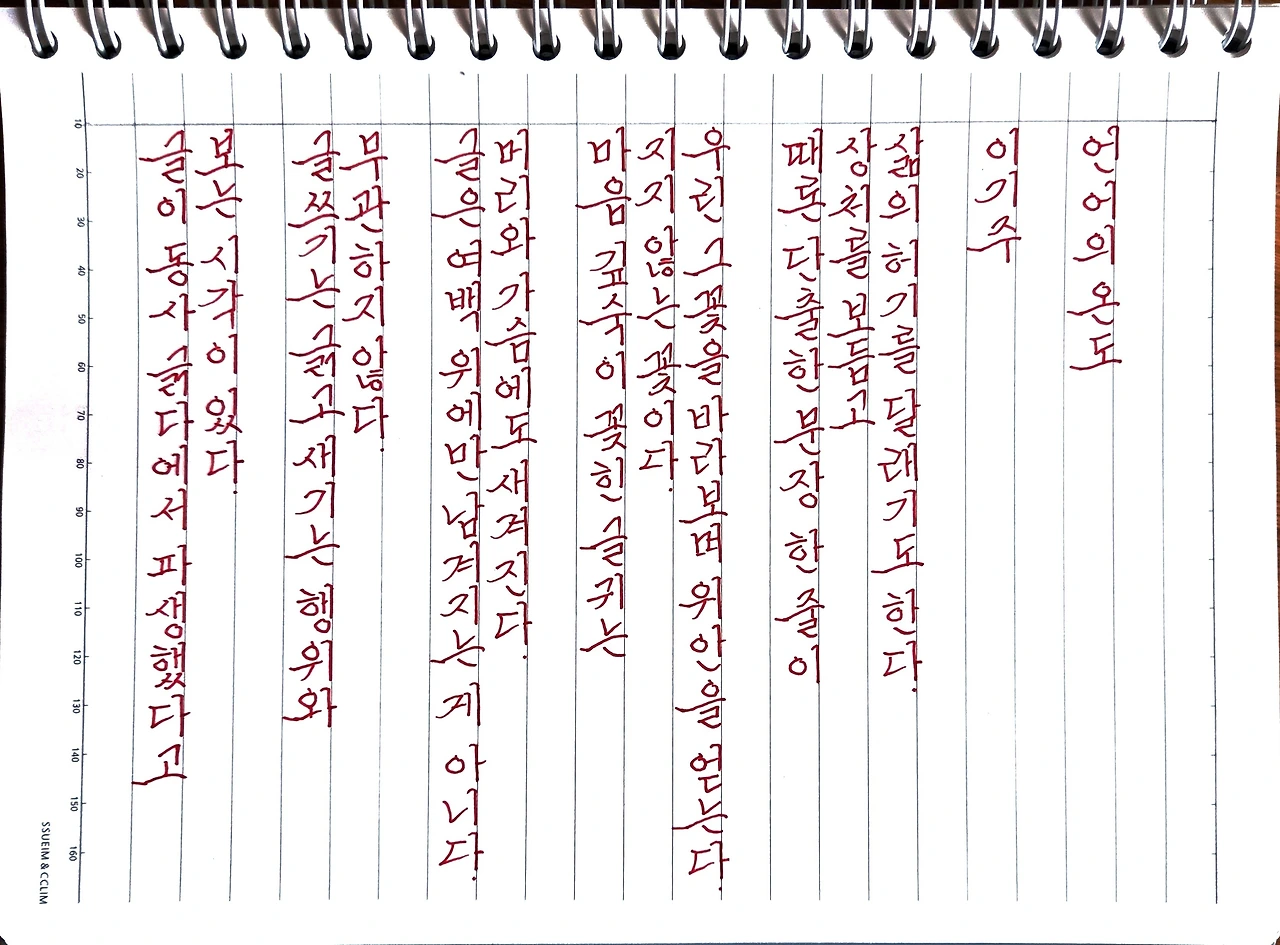 글이 동사 긁다에서 파생했다고
보는 시각이 있다.
글쓰기는 긁고 새기는 행위와
무관하지 않다.
글은 여백 위에만 남겨지는 게 아니다.
머리와 가슴에도 새겨진다.
마음 깊숙이 꽂힌 글귀는
지지 않는 꽃이다.
우린 그 꽃을 바라보며 위안을 얻는다.
때론 단출한 문장 한 줄이
상처를 보듬고
삶의 허기를 달래기도 한다.
이기주
언어의 온도
10 20 30 40 50 60 70 80 90 100 110 120 130 140 150 160
SSUEIM & CCLIM